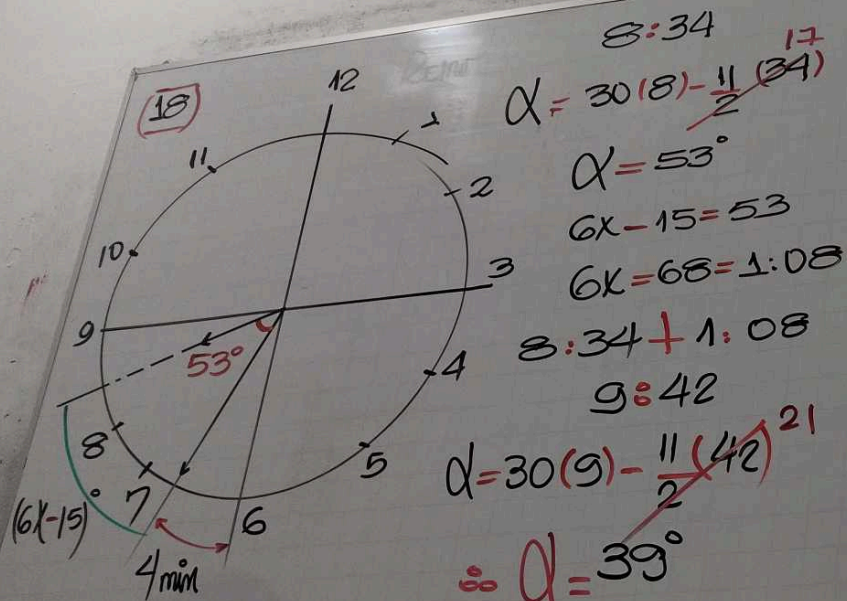 18
12
1
2
3
4
5
6
7
8
9
10
11
53°
(6X-15)°
4 min
8:34
α = 30(8) - 11/2 (34) 17
α = 53°
6X - 15 = 53
6X = 68 = 1:08
8:34 + 1:08
9:42
α = 30(9) - 11/2 (42) 21
∴ α = 39°